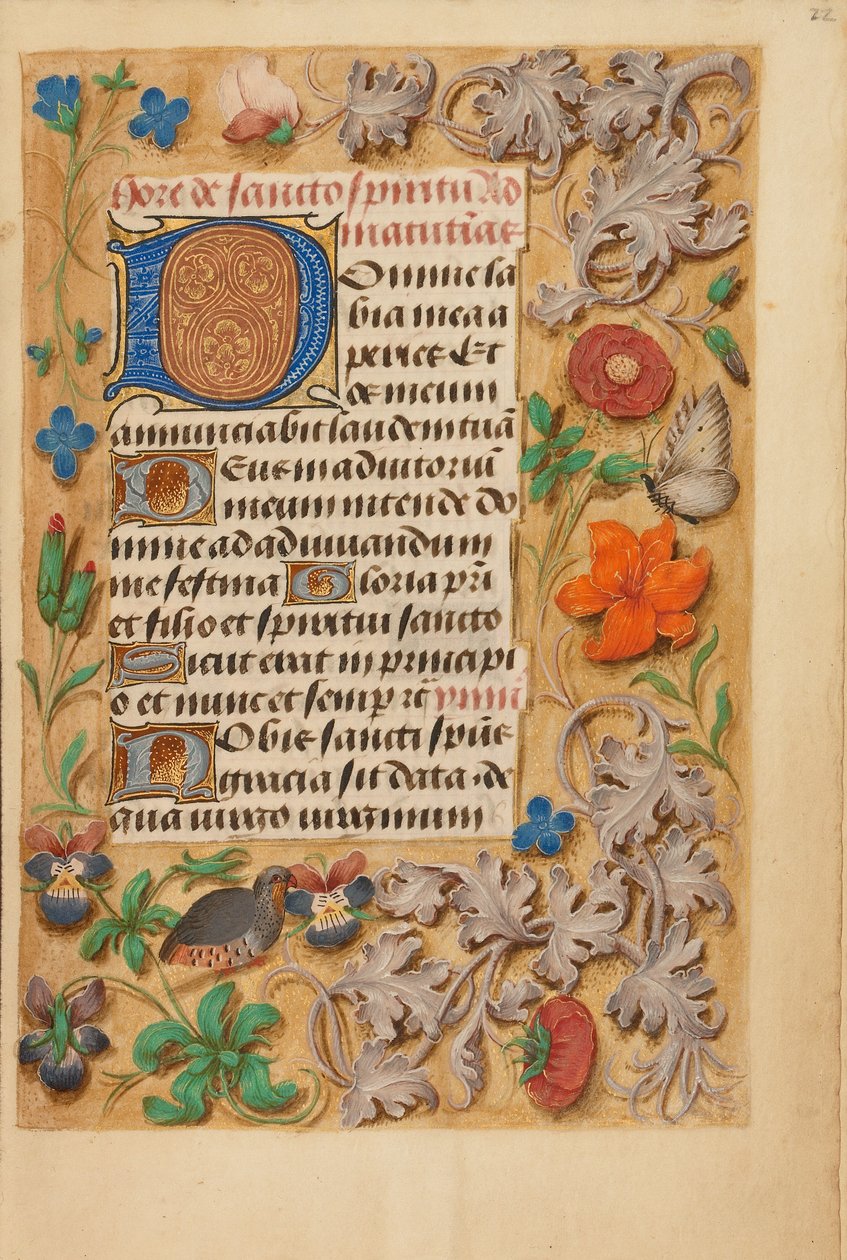 22
Hore de sancto spiritu Ad
matutinas
Domine la
bia mea a
peries Et
os meum
annunciabit laudem tuā
Deus in adiutoriū
meum intende do
mine ad adiuuandum
me festina Gloria pr̄i
et filio et spiritui sancto
Sicut erat in principi
o et nunc et semper rc̄ ymnꝰ
Nobis sancti spūs
gracia sit data · de
qua uirgo uirginum